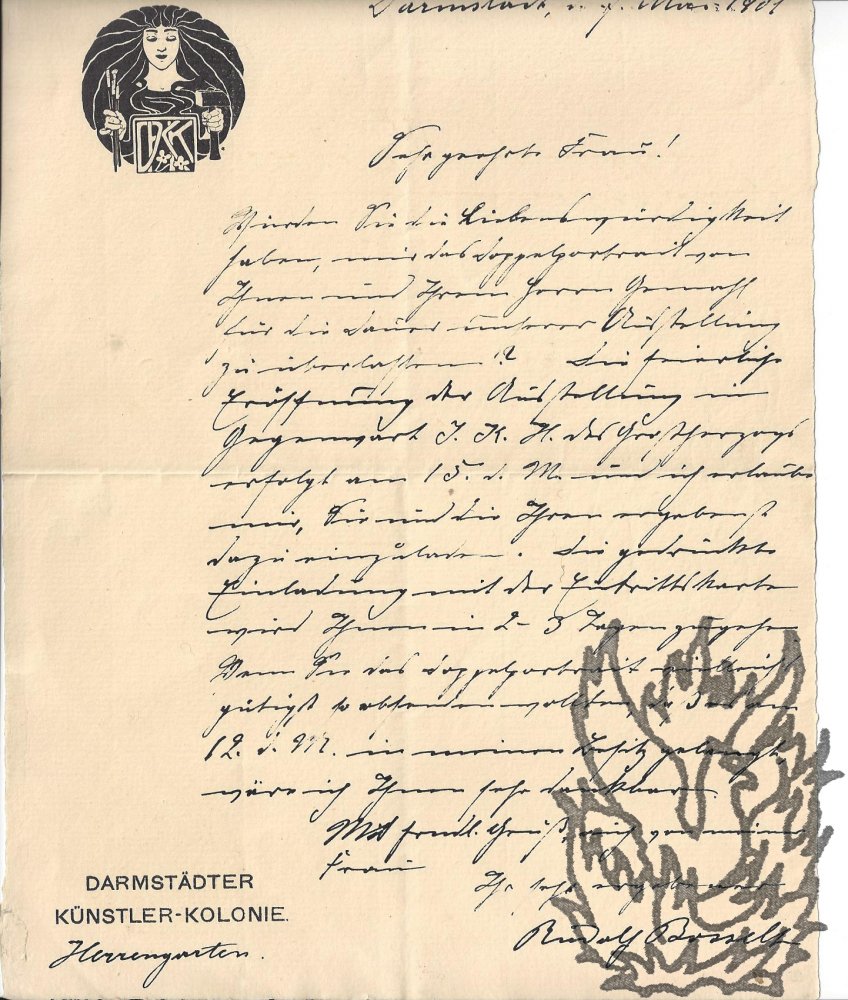 Darmstadt, d. 7. Mai 1901
DKK
Sehr geehrte Frau!
Würden Sie die Liebenswürdigkeit
haben, mir das Doppelportrait von
Ihnen und Ihrem Herrn Gemahl
für die Dauer unserer Ausstellung
zu überlassen? Die feierliche
Eröffnung der Ausstellung in
Gegenwart I. K. H. des Großherzogs
erfolgt am 15. d. M. und ich erlaube
mir, Sie und die Ihren ergebenst
dazu einzuladen. Die gedruckte
Einladung mit der Eintrittskarte
wird Ihnen in 2-3 Tagen zugehen.
Wenn Sie das Doppelportrait vielleicht
gütigst so absenden wollten, daß es am
12. d. M. in meinen Besitz gelangt,
wäre ich Ihnen sehr dankbar.
Mit frndl. Gruß, auch von meiner
Frau
Ihr sehr ergebener
Rudolf Bosselt
DARMSTÄDTER
KÜNSTLER-KOLONIE.
Herrengarten.